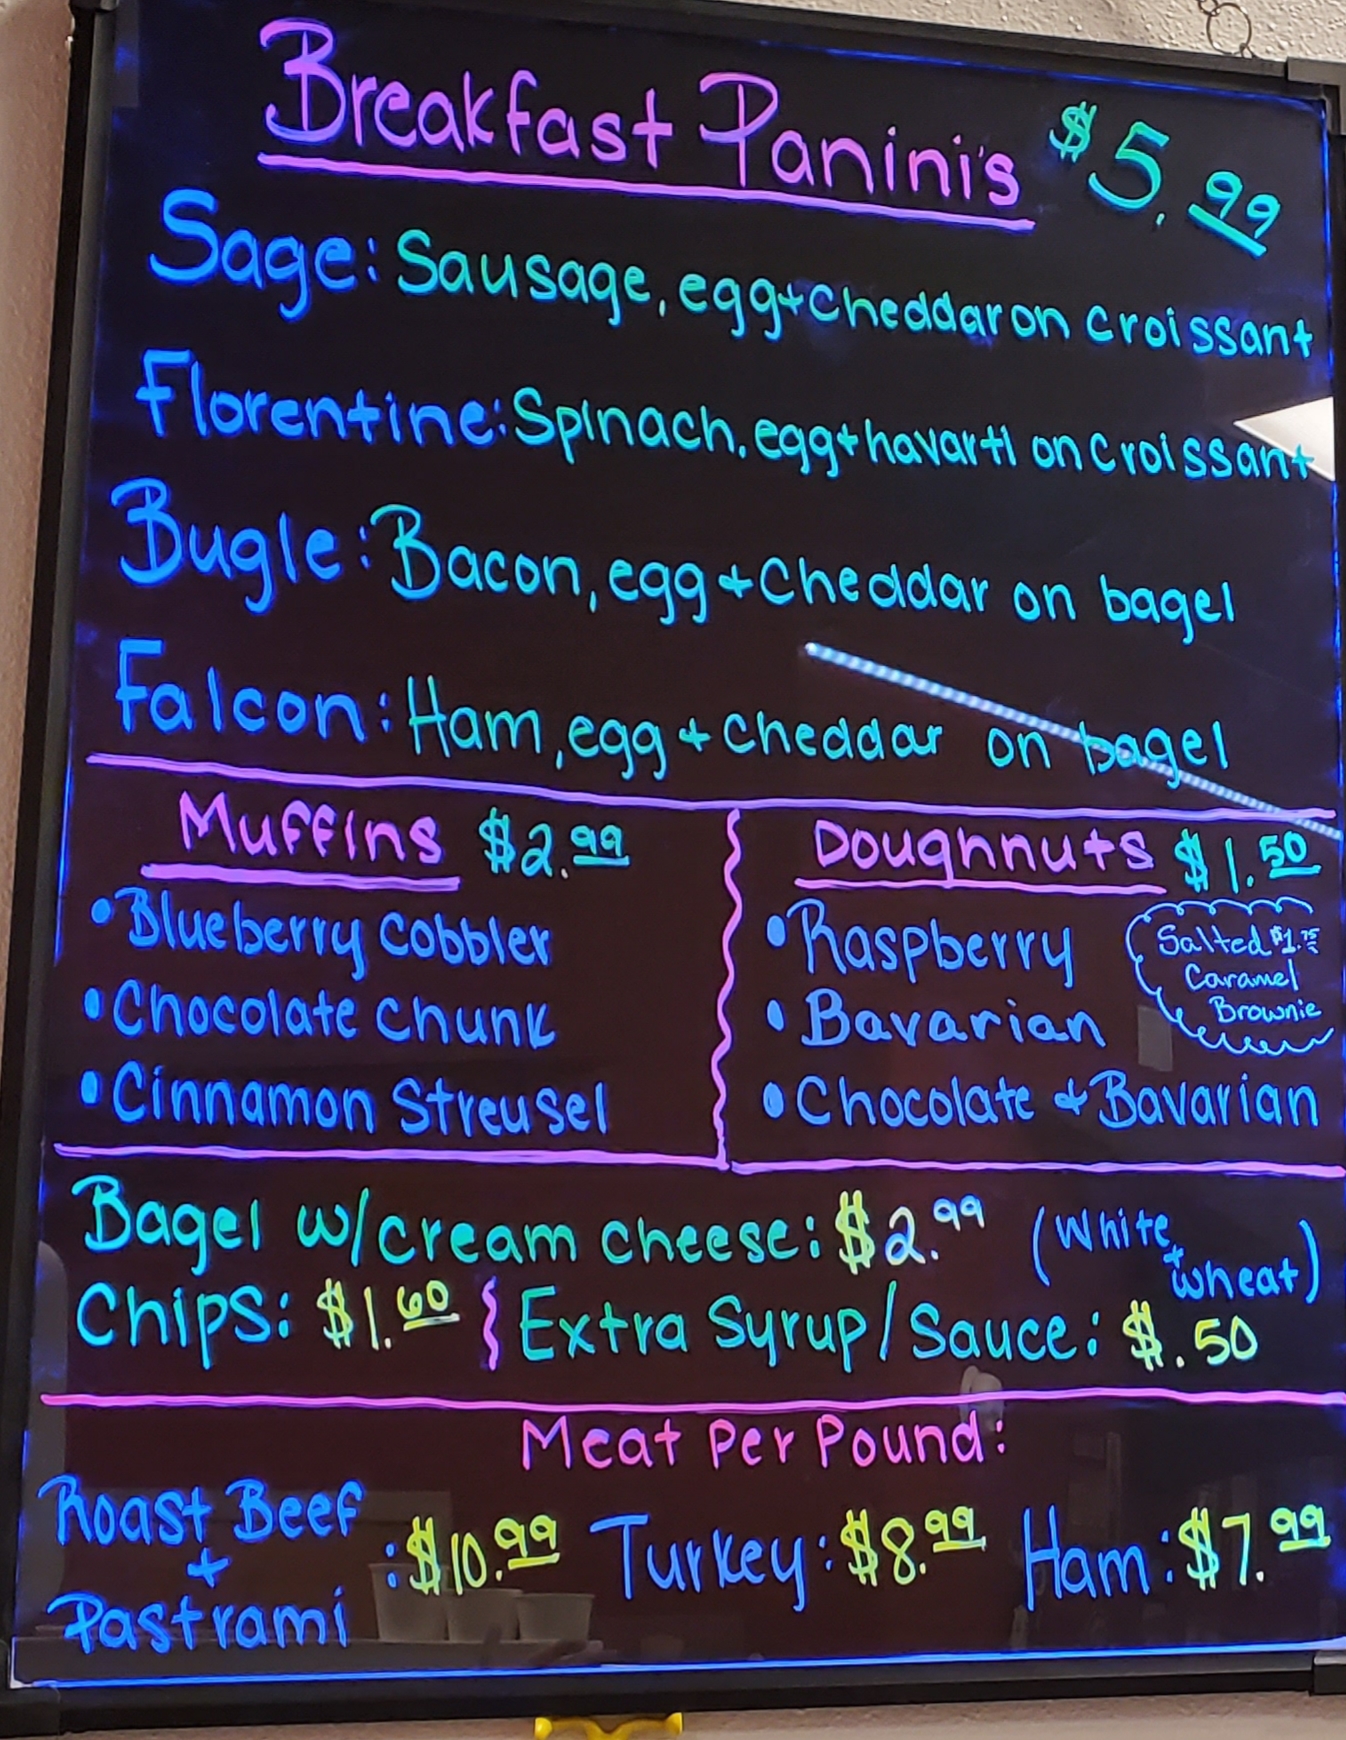 Breakfast Panini's $5.99
Sage: Sausage, egg + Cheddar on Croissant
Florentine: Spinach, egg + havarti on Croissant
Bugle: Bacon, egg + Cheddar on bagel
Falcon: Ham, egg + Cheddar on bagel
Muffins $2.99
• Blueberry Cobbler
• Chocolate Chunk
• Cinnamon Streusel
Doughnuts $1.50
• Raspberry
• Bavarian
• Chocolate & Bavarian
Salted $1.75
Caramel
Brownie
Bagel w/cream cheese: $2.99 (White + Wheat)
Chips: $1.60 Extra Syrup/Sauce: $.50
Meat Per Pound:
Roast Beef
+
Pastrami
: $10.99 Turkey: $8.99 Ham: $7.99